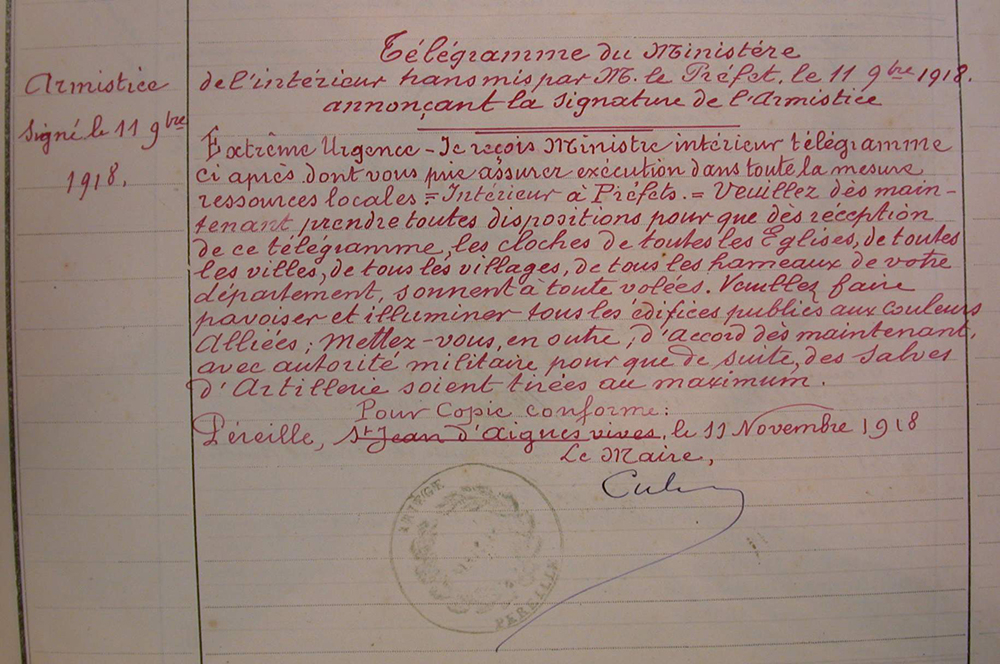 Armistice
signé le 11 9bre
1918.
Télégramme du Ministère
de l'intérieur transmis par M. le Préfet, le 11 9bre 1918.
annonçant la signature de l'Armistice
Extrême Urgence - Je reçois Ministre intérieur télégramme
ci après dont vous prie assurer exécution dans toute la mesure
ressources locales = Intérieur à Préfets. = Veuillez dès main-
tenant prendre toutes dispositions pour que dès réception
de ce télégramme, les cloches de toutes les Eglises, de toutes
les villes, de tous les villages, de tous les hameaux de votre
département, sonnent à toute volées. Veuillez faire
pavoiser et illuminer tous les édifices publics aux couleurs
Alliées; Mettez-vous, en outre, d'accord dès maintenant,
avec autorité militaire pour que de suite, des salves
d'Artillerie soient tirées au maximum.
Pour Copie conforme:
Péreille, St Jean d'Aigues vives, le 11 Novembre 1918
Le Maire,
ARIÈGE
MAIRIE
PEREILLE